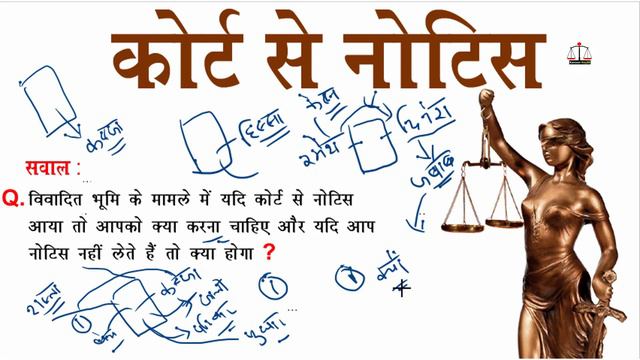 कोर्ट से नोटिस
कब्जा
हिस्सा
रमेश
दिनेश
जवाब
सवाल :
Q. विवादित भूमि के मामले में यदि कोर्ट से नोटिस
आया तो आपको क्या करना चाहिए और यदि आप
नोटिस नहीं लेते हैं तो क्या होगा ?
रास्ता
कब्जा